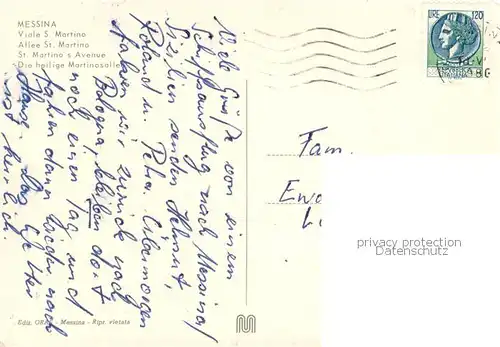 MESSINA
Viale S. Martino
Allee St. Martino
St. Martino's Avenue
Die heilige Martinosallee
LIRE 120
Viele Grüße von einem
Schiffsausflug nach Messina/
Sizilien senden Helmut,
Roland u. Petra. Übermorgen
fahren wir zurück nach
Bologna, bleiben dort
noch einen Tag und
fahren dann wieder nach
Hause. Das
ist herrlich.
Fam.
privacy protection
Datenschutz
Ediz. - Messina - Ripr. vietata